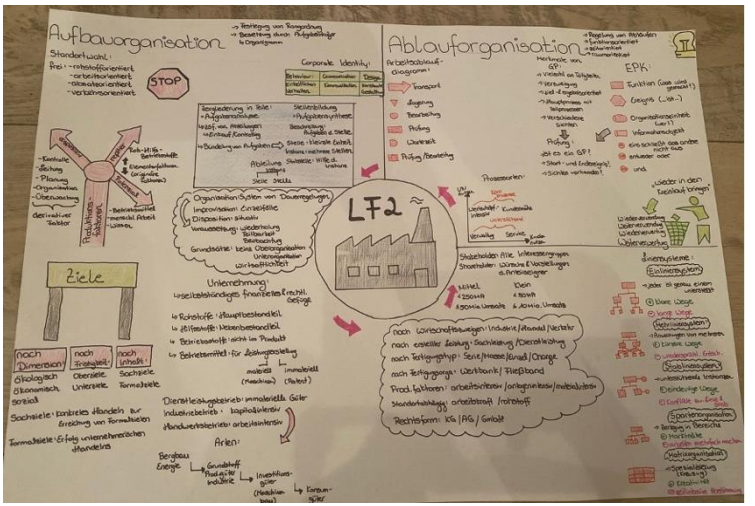 Aufbauorganisation
→ Festlegung von Rangordnung
→ Besetzung durch Aufgabenträger
↳ Organigramm
Standortwahl:
frei: - rohstofforientiert
- arbeitsorientiert
- absatzorientiert
- verkehrsorientiert
STOP
Corporate Identity:
Behaviour: Communication Design
Einheitliches
Verhalten
Zergliederung in Teile:
→ Aufgabenanalyse
Stellenbildung
→ Aufgabensynthese
→ Bündelung von Aufgaben
Abteilung
Stelle Stelle
dispositiv
- Kontrolle
- Leitung
- Planung
- Organisation
- Überwachung
derivativer
Faktor
Produktions-
faktoren
Elementarfaktoren
- Betriebsmittel
- menschl. Arbeit
- Wissen
Organisation: System von Dauerregelungen
Improvisation: Einzelfälle
Disposition: situativ
Voraussetzung: Wiederholung
Teilbarkeit
Grundsätze: keine Überorganisation
Unterorganisation
Wirtschaftlichkeit
Ziele
nach
Dimension
nach
nach
Inhalt:
Ökologisch
Ökonomisch
sozial
Oberziele
Unterziele
Sachziele
Formalziele
Sachziele: konkretes Handeln zur
Erreichung von Formalzielen
Formalziele: Erfolg unternehmerischen
Handelns
Unternehmung:
↳ selbstständiges finanzielles & rechtl.
Gefüge
↳ Rohstoffe: Hauptbestandteil
↳ Hilfsstoffe: Nebenbestandteil
↳ Betriebsstoffe: nicht im Produkt
↳ Betriebsmittel: für Leistungserstellung
materiell
(Maschinen)
immateriell
(Patent)
Dienstleistungsbetrieb: immaterielle Güter
Industriebetrieb: kapitalintensiv
Handwerksbetrieb: arbeitsintensiv
Arten:
Bergbau
Energie
Grundstoff
Industrie
Investitions-
güter
(Maschinen
bau)
Konsum-
güter
LF2
Ablauforganisation
→ Regelung von Abläufen
→ funktionsorientiert
→ zeitorientiert
→ raumorientiert
Arbeitsablauf-
diagramm:
Transport
Lagerung
Bearbeitung
Prüfung
Wartezeit
Prüfung/Bearbeitung
Merkmale von
GP:
→ Vielzahl an Tätigkeiten
→ Verzweigung
→ Ziel-/ergebnisorientiert
→ Hauptprozess mit
Teilprozessen
→ Verschiedene
Sichten
Prüfung:
ist es ein GP?
→ Start- und Endereignis?
→ Sichten vorhanden?
EPK:
Funktion (was wird
gemacht?)
Ereignis (...ist...)
Organisationseinheit
(wer?)
Informationsobjekt
eins schließt das andere
nicht aus
entweder oder
und
Prozessarten:
Unterstützend
Verwaltung Service
"wieder in den
Kreislauf bringen"
Wiederverwendung
Weiterverwendung
Wiederverwertung
Weiterverwertung
Stakeholder: Alle Interessengruppen
Shareholder: Wünsche & Vorstellungen
d. Anteilseigner
Mittel
≤ 250 MA
≤ 50 Mio. Umsatz
Klein
≤ 50 MA
≤ 10 Mio. Umsatz
nach Wirtschaftszweigen: Industrie/Handel/Verkehr
nach erstellter Leistung: Sachleistung/Dienstleistung
nach Fertigungstyp: Serie/Masse/Einzel/Charge
nach Fertigungsorga: Werkbank/Fließband
Prod. faktoren: arbeitsintensiv/anlagenintensiv/materialintensiv
Standortabhängig: arbeitskraft/rohstoff
Rechtsform: KG/AG/GmbH
Liniensysteme:
Einliniensystem
→ jeder ist genau einem
unterstellt
klare Wege
lange Wege
Mehrliniensystem
→ Anweisungen von mehreren
kürzere Wege
Stabliniensystem
→ unterstützende Instanzen
eindeutige Wege
Spartenorganisation
→ Zerlegung in Bereiche
Marktnähe
Matrixorganisation
→ Spezialisierung
(Kreuzung)
Kreativität